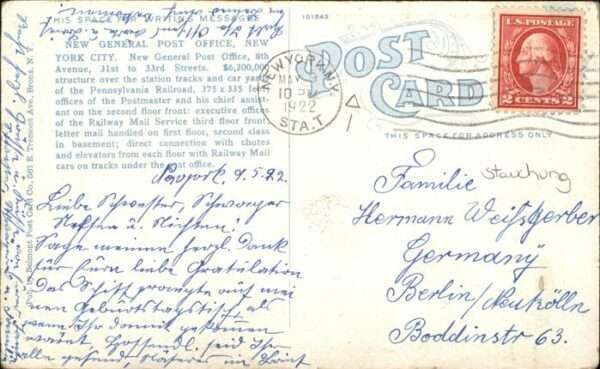 THIS SPACE FOR WRITING MESSAGES
101843
NEW GENERAL POST OFFICE, NEW
YORK CITY. New General Post Office, 8th
Avenue, 31st to 33rd Streets. $6,200,000
structure over the station tracks and car yard
of the Pennsylvania Railroad, 375 x 335 feet
offices of the Postmaster and his chief assist-
ant on the second floor front: executive offices
of the Railway Mail Service third floor front;
letter mail handled on first floor, second class
in basement; direct connection with chutes
and elevators from each floor with Railway Mail
cars on tracks under the post office.
Newyork 9.5.22.
Liebe Schwester, Schwager
Neffen u. Nichten!
Sage meinen herzl. Dank
für Eure liebe Gratulation
Das Schiff prangte auf mei
nen Geburtstagstisch, als
wenn Ihr damit gekommen
waret, Hoffendl. seid Ihr
alle gesund, Näheres im Brief
Pub. by Belmont Post Card Co., 501 E. Tremont Ave., Bronx, N.Y.
POST CARD
THIS SPACE FOR ADDRESS ONLY
NEW YORK, N.Y.
10
1922
STA. T
U.S. POSTAGE
2 CENTS 2
Familie
Stauchung
Hermann Weißgerber
Germany
Berlin/Neukölln
Boddinstr 63.